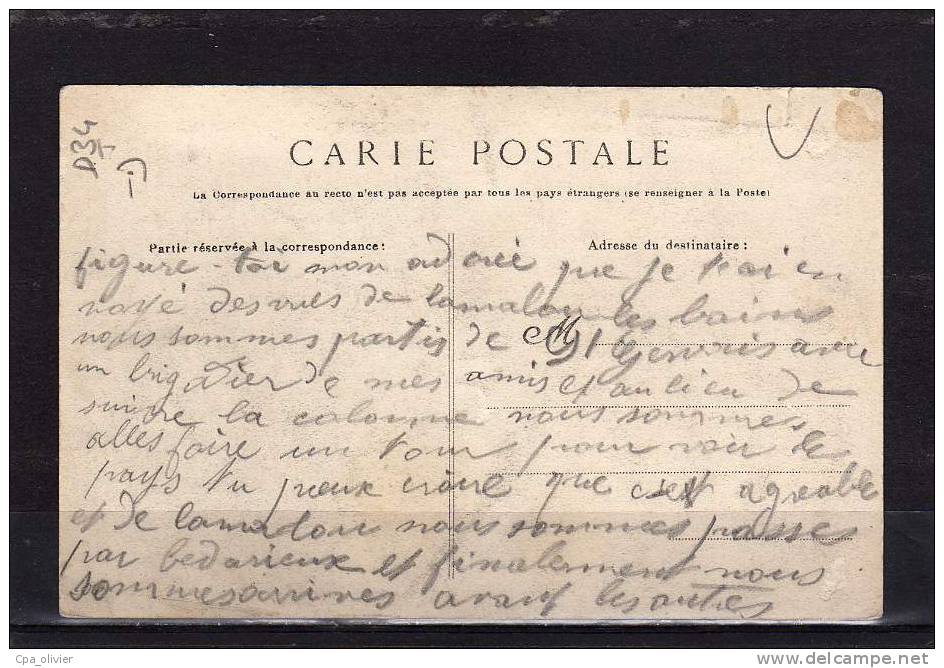 D34
CARTE POSTALE
La Correspondance au recto n'est pas acceptée par tous les pays étrangers (se renseigner à la Poste)
Partie réservée à la correspondance:
Adresse du destinataire:
figure-toi mon adorée que je t'ai en
voyé des vues de lamalou les bains
nous sommes partis de St Gervais avec
un brigadier de mes amis et au lieu de
suivre la colonne nous sommes
alles faire un tour pour voir les
pays tu peux croire que c'est agreable
et de lamalou nous sommes passes
par bedarieux et finalement nous
sommes arrives avant les autres
Cpa_olivier
delcampe.net